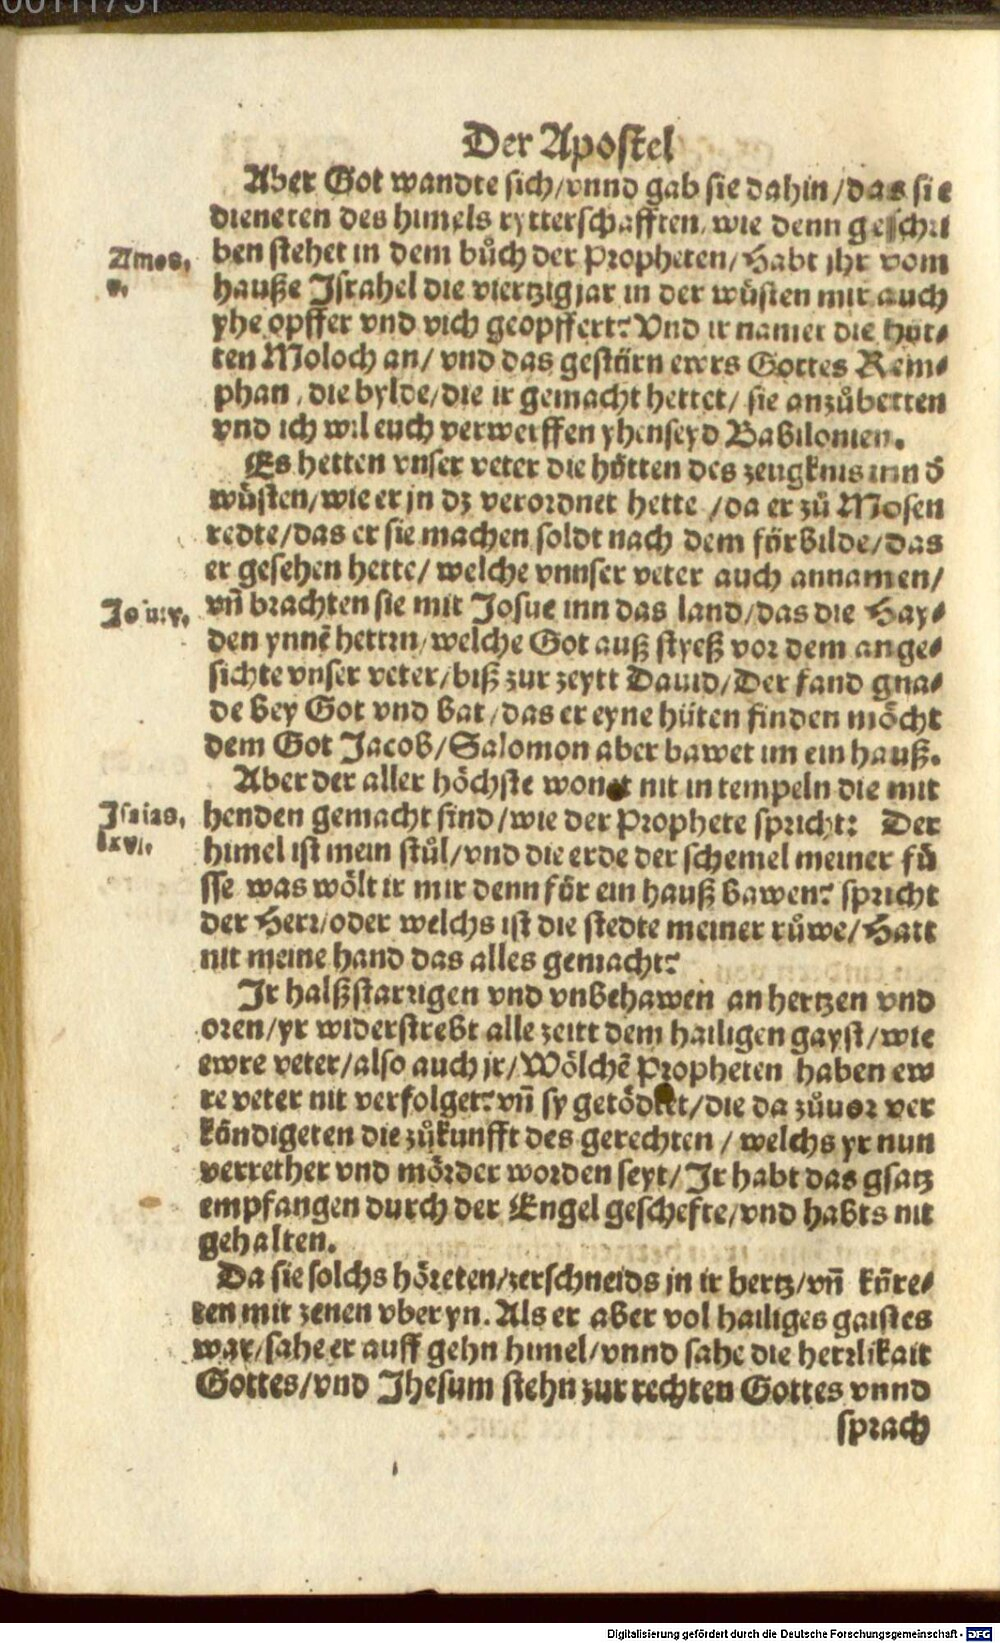 Der Apostel
Aber Got wandte sich/vnnd gab sie dahin/das sie
dieneten des himels rytterschafften, wie denn geschri
Amos. v.
ben stehet in dem bůch der Propheten/Habt jhr vom
hauße Israhel die viertzig jar in der wüsten mir auch
yhe opffer vnd vich geopffert? Vnd ir namet die hüt⸗
ten Moloch an/ vnd das gestürn ewrs Gottes Rem⸗
phan, die bylde/die ir gemacht hettet/ sie anzůbetten
vnd ich wil euch verwerffen yhenseyd Babilonien.
Es hetten vnser veter die hütten des zeugknis inn d̄
wüsten/wie er jn dz verordnet hette /da er zů Mosen
redte/das er sie machen soldt nach dem fürbilde/das
er gesehen hette/ welche vnnser veter auch annamen/
Josu:v.
vn̄ brachten sie mit Josue inn das land/das die Hay⸗
den ynnē hettrn/welche Got auß styeß vor dem ange⸗
sichte vnser veter/biß zur zeytt Dauid/Der fand gna⸗
de bey Got vnd bat/das er eyne hüten finden möcht
dem Got Jacob/Salomon aber bawet im ein hauß.
Aber der aller höchste wonet nit in tempeln die mit
Isaias. lxvi.
henden gemacht sind/wie der Prophete spricht: Der
himel ist mein stůl/vnd die erde der schemel meiner fü
sse was wölt ir mir denn für ein hauß bawen? spricht
der Herr/oder welchs ist die stedte meiner růwe/Hatt
nit meine hand das alles gemacht?
Ir halßstarrigen vnd vnbehawen an hertzen vnd
oren/yr widerstrebt alle zeitt dem hailigen gayst/wie
ewre veter/also auch jr/Wölchē Propheten haben ew
re veter nit verfolget? vn̄ sy getödtet/die da zůuor ver
kündigeten die zůkunfft des gerechten / welchs yr nun
verrether vnd mörder worden seyt/Ir habt das gsatz
empfangen durch der Engel geschefte/vnd habts nit
gehalten.
Da sie solchs höreten/zerschneids jn ir hertz/vn̄ kn̄re⸗
ten mit zenen vber yn. Als er aber vol hailiges gaistes
war/sahe er auff gehn himel/vnnd sahe die herrlikait
Gottes/vnd Jhesum stehn zur rechten Gottes vnnd
sprach
Digitalisierung gefördert durch die Deutsche Forschungsgemeinschaft - DFG